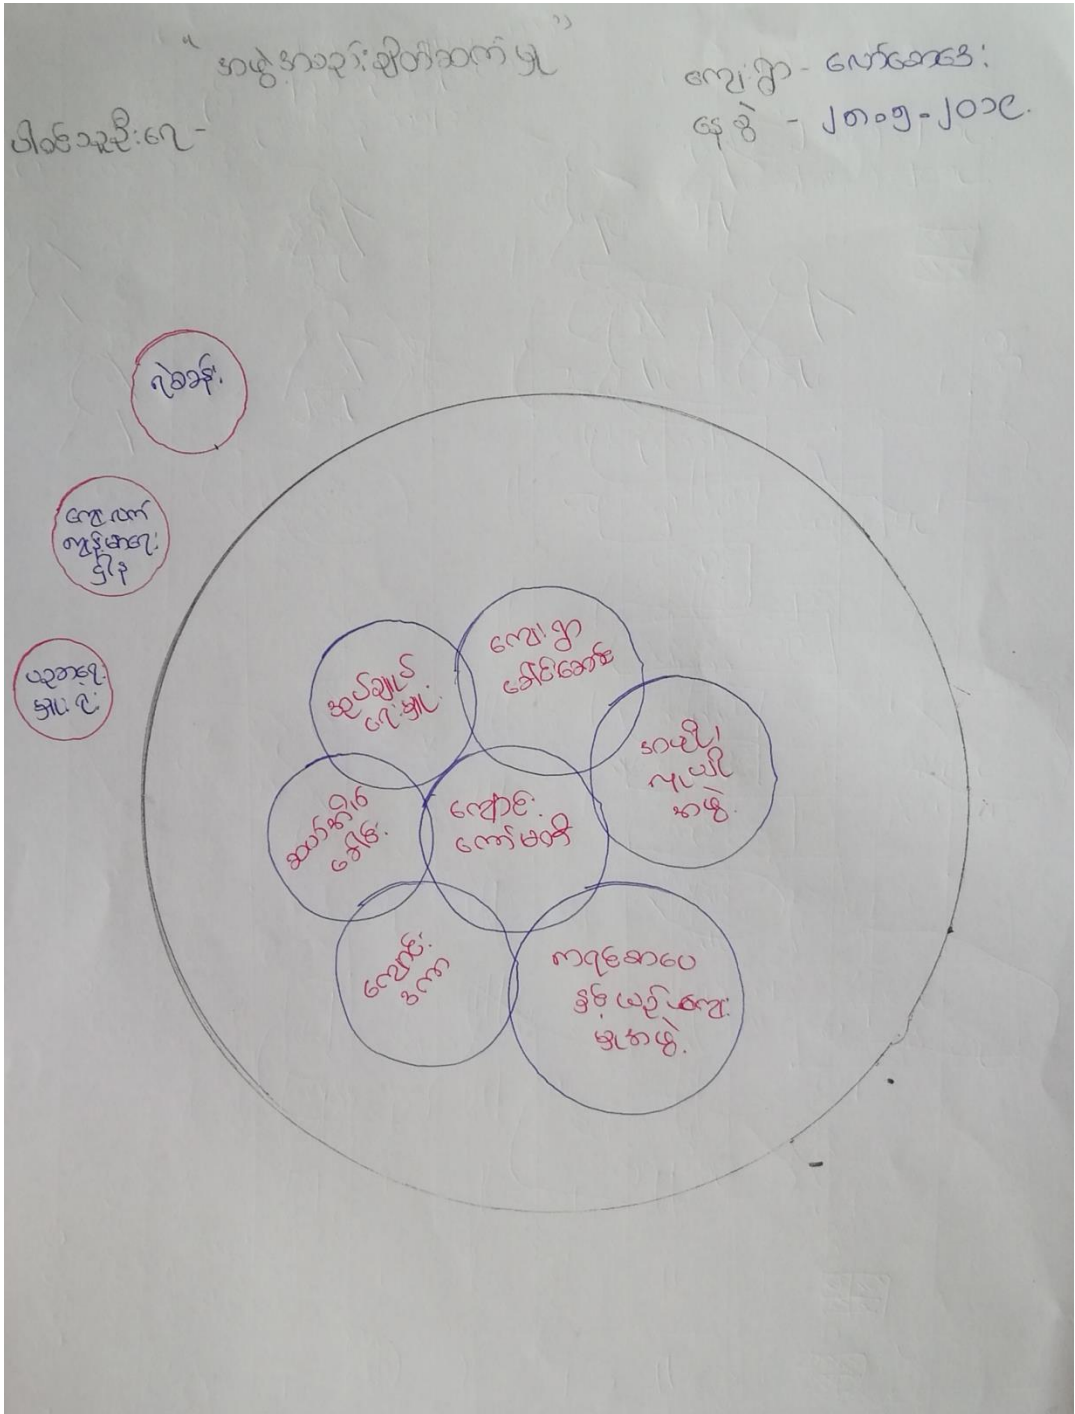 "အဖွဲ့အစည်းချိတ်ဆက်မှု"
ကျေးရွာ - လော်ဆောဒေး
နေ့စွဲ - ၂၈-၅-၂၀၁၉.
ပါဝင်သူဦးရေ -
ရဲစခန်း
ကျေးလက်
ကျန်းမာရေး
ဌါန
ပညာရေး
မှူးရုံး
အုပ်ချုပ်
ရေးမှူး
ကျေးရွာ
ခေါင်းဆောင်
အပျို၊
လူပျို
အဖွဲ့
ဆယ်အိမ်
ခေါင်း
ကျောင်း
ကော်မတီ
ကျောင်း
ဒကာ
ကရင်စာပေ
နှင့်ယဉ်ကျေး
မှုအဖွဲ့